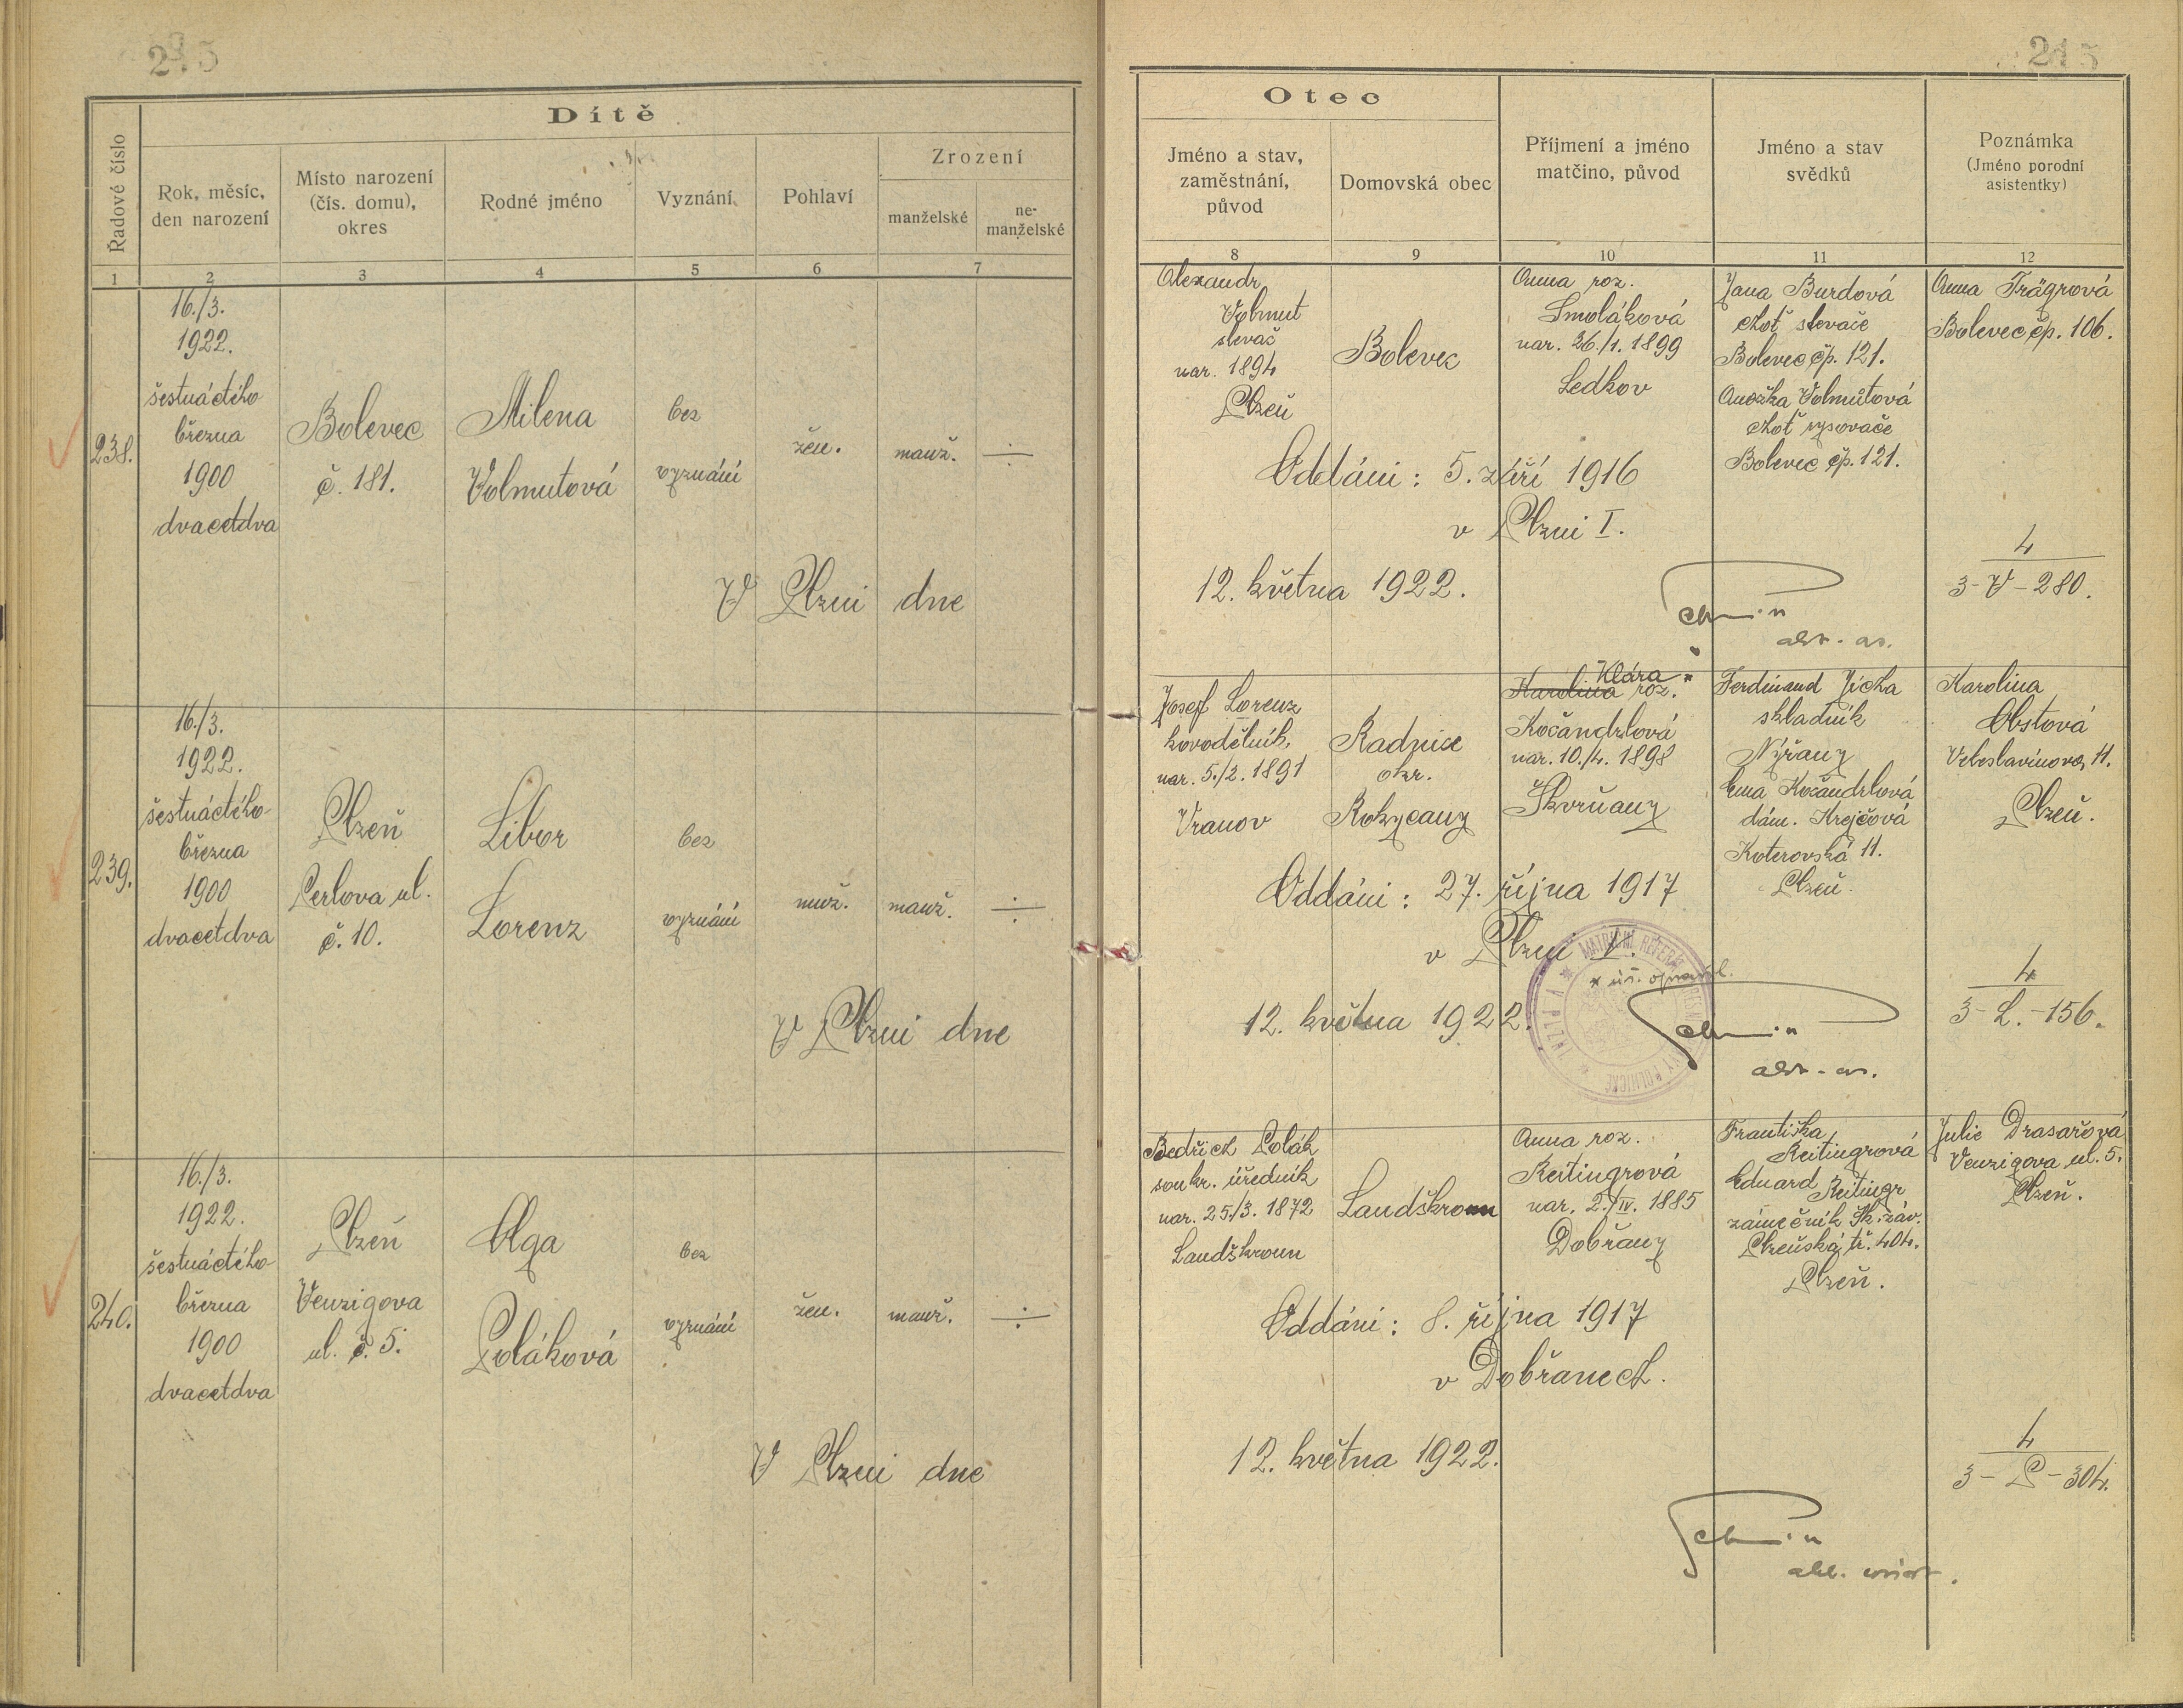 215
Dítě
Řadové číslo
Rok, měsíc,
den narození
Místo narození
(čís. domu),
okres
Rodné jméno
Vyznání
Pohlaví
Zrození
manželské
ne-
manželské
1
2
3
4
5
6
7
238.
16./3.
1922.
šestnáctého
března
1900
dvacetdva
Bolevec
č. 181.
Milena
Volmutová
bez
vyznání
žen.
manž.
V Plzni dne
239.
16./3.
1922.
šestnáctého
března
1900
dvacetdva
Plzeň
Perlova ul.
č. 10.
Libor
Lorenz
bez
vyznání
muž.
manž.
V Plzni dne
240.
16./3.
1922.
šestnáctého
března
1900
dvacetdva
Plzeň
Venzigova
ul. č. 5.
Olga
Poláková
bez
vyznání
žen.
manž.
V Plzni dne
215
Otec
Jméno a stav,
zaměstnání,
původ
Domovská obec
Příjmení a jméno
matčino, původ
Jméno a stav
svědků
Poznámka
(Jméno porodní
asistentky)
8
9
10
11
12
Alexandr
Volmut
slevač
nar. 1894
Plzeň
Bolevec
Anna roz.
Smoláková
nar. 26./1. 1899
Ledkov
Jana Burdová
choť slevače
Bolevec čp. 121.
Anežka Volmutová
choť
Bolevec čp. 121.
Anna Trägrová
Bolevec čp. 106.
Oddáni: 5. září 1916
v Plzni I.
12. května 1922.
4
3-V-280.
Josef Lorenz
kovodělník,
nar. 5./2. 1891
Vranov
Radnice
okr.
Rokycany
Klára
Karolina roz.
Kočandrlová
nar. 10./4. 1898
Skvrňany
Ferdinand Jícha
skladník
Nýřany
Ema Kočandrlová
dám. Krejčová
Koterovská 11.
Plzeň.
Karolina
Obstová
Veleslavínova 11.
Plzeň.
Oddáni: 27. října 1917
v Plzni V.
12. května 1922.
4
3-L.-156.
Bedřich Polák
soukr. úředník
nar. 25./3. 1872
Landškroun
Landškroun
Anna roz.
Reitingrová
nar. 2./IV. 1885
Dobřany
Františka
Reitingrová
Eduard Reitingr
zámečník Šk. záv.
Plzeňská tř. 404.
Plzeň.
Julie Drasařová
Venzigova ul. 5.
Plzeň.
Oddáni: 8. října 1917
v Dobřanech.
12. května 1922.
4
3-P-304.